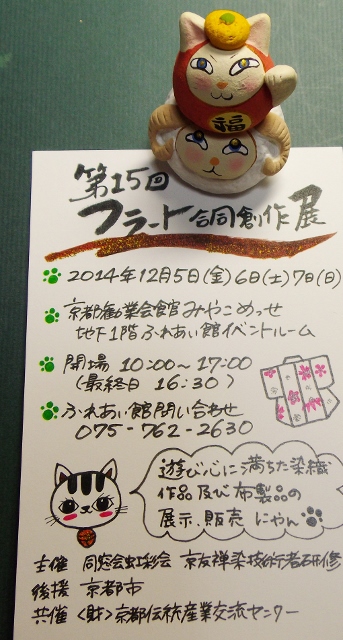 福
第15回
フラート合同創作展
2014年12月5日(金)6日(土)7日(日)
京都勧業会館みやこめっせ
地下1階ふれあい館イベントルーム
開場 10:00～17:00
(最終日 16:30)
ふれあい館問い合わせ
075-762-2630
遊び心に満ちた染織
作品及び布製品の
展示、販売 にゃん
主催 同窓会虹彩会 京友禅染技術者研修
後援 京都市
共催 〈財〉京都伝統産業交流センター